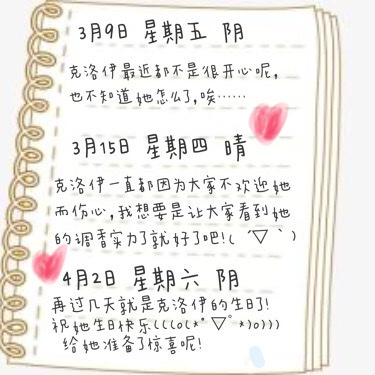 3月9日 星期五 阴
克洛伊最近都不是很开心呢,
也不知道她怎么了,唉……
3月15日 星期四 晴
克洛伊一直都因为大家不欢迎她
而伤心,我想要是让大家看到她
的调香实力了就好了吧!( ´▽｀)
4月2日 星期六 阴
再过几天就是克洛伊的生日了!
祝她生日快乐(((o(*ﾟ▽ﾟ*)o)))
给她准备了惊喜呢!